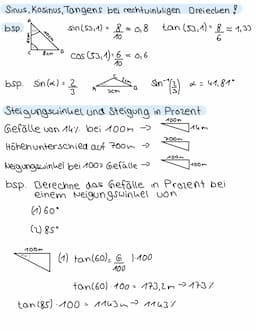 Sinus, Kosinus, Tangens bei rechtwinkligen Dreiecken 8
bsp. sin(53,1) = 8/10 = 0,8 tan(53,1) = 8/6 ≈ 1,33
cos(53,1) = 6/10 = 0,6
bsp. sin(α) = 2/3 3cm sin⁻¹(2/3) α = 41,81°
Steigungswinkel und Steigung in Prozent
Gefälle von 14% bei 100m → 100m 14m
Höhenunterschied auf 700m → 700m
Neigungswinkel bei 100% Gefälle → 100m 100m
bsp. Berechne das Gefälle in Prozent bei
einem Neigungswinkel von
(1) 60°
(2) 85°
100m (1) tan(60) = G/100 |·100
tan(60)·100 = 173,2m → 173%
tan(85)·100 = 1143m → 1143%